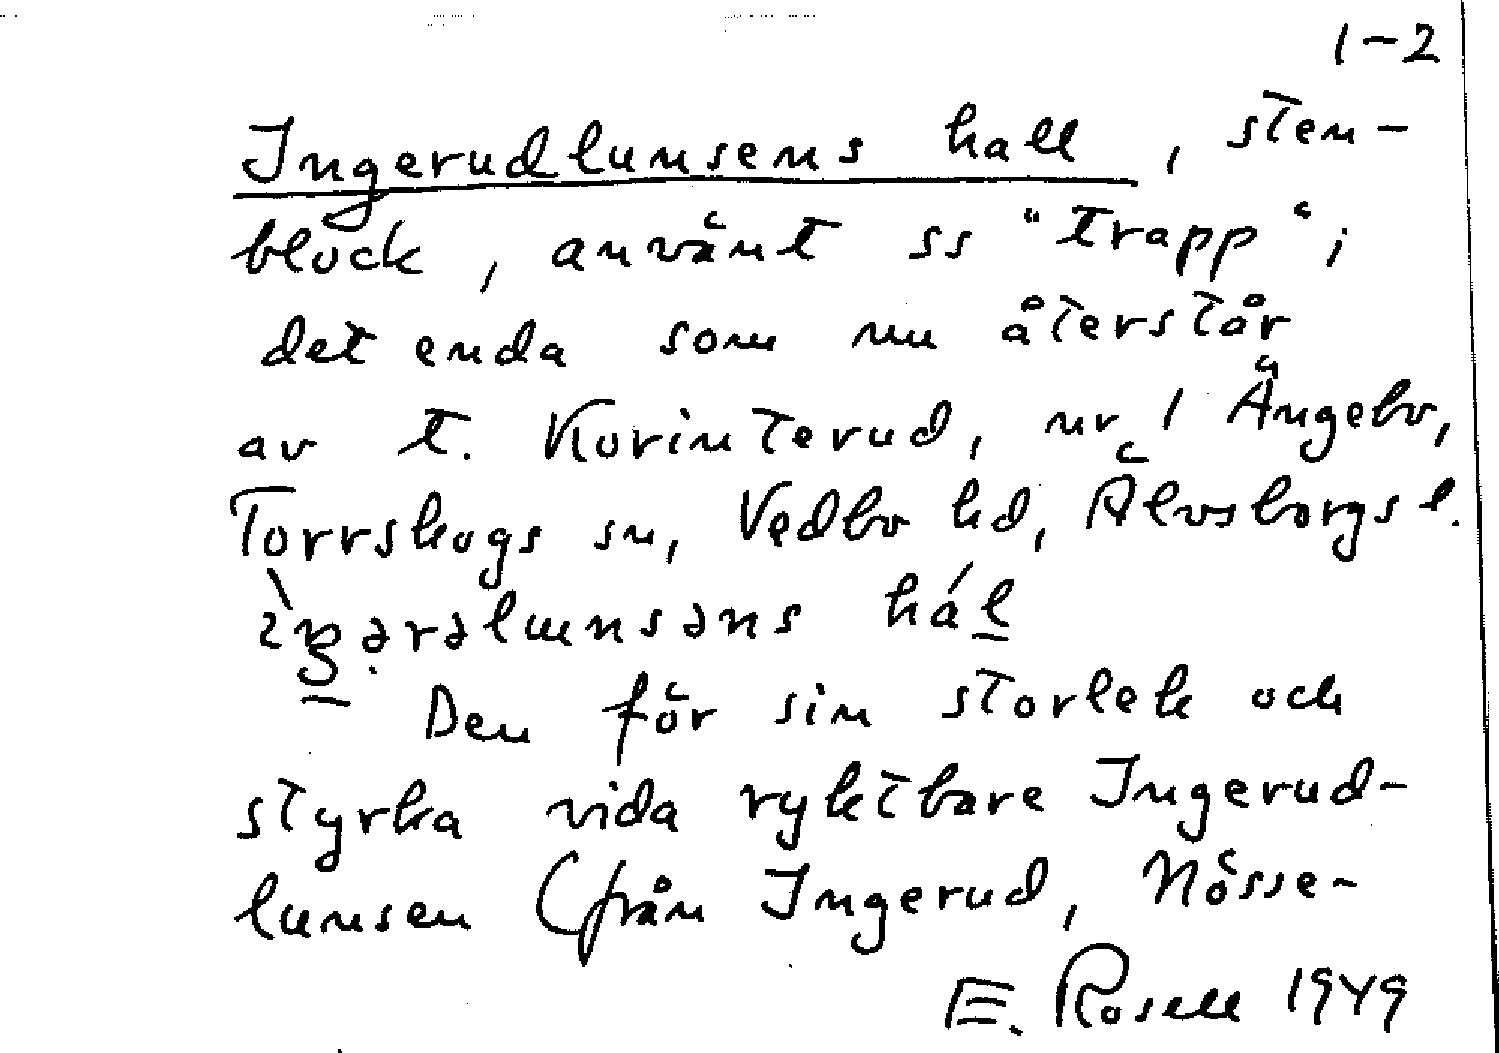 1-2
Ingerudlunsens hall, sten-
block, använt ss "trapp";
det enda som nu återstår
av t. Korinterud, nr 1 Ängebo,
Torrskogs sn, Vedbo hd, Älvsborgs l.
Den för sin storlek och
styrka vida ryktbare Ingerud-
lunsen (från Ingerud, Nösse-
E. Rosell 1949